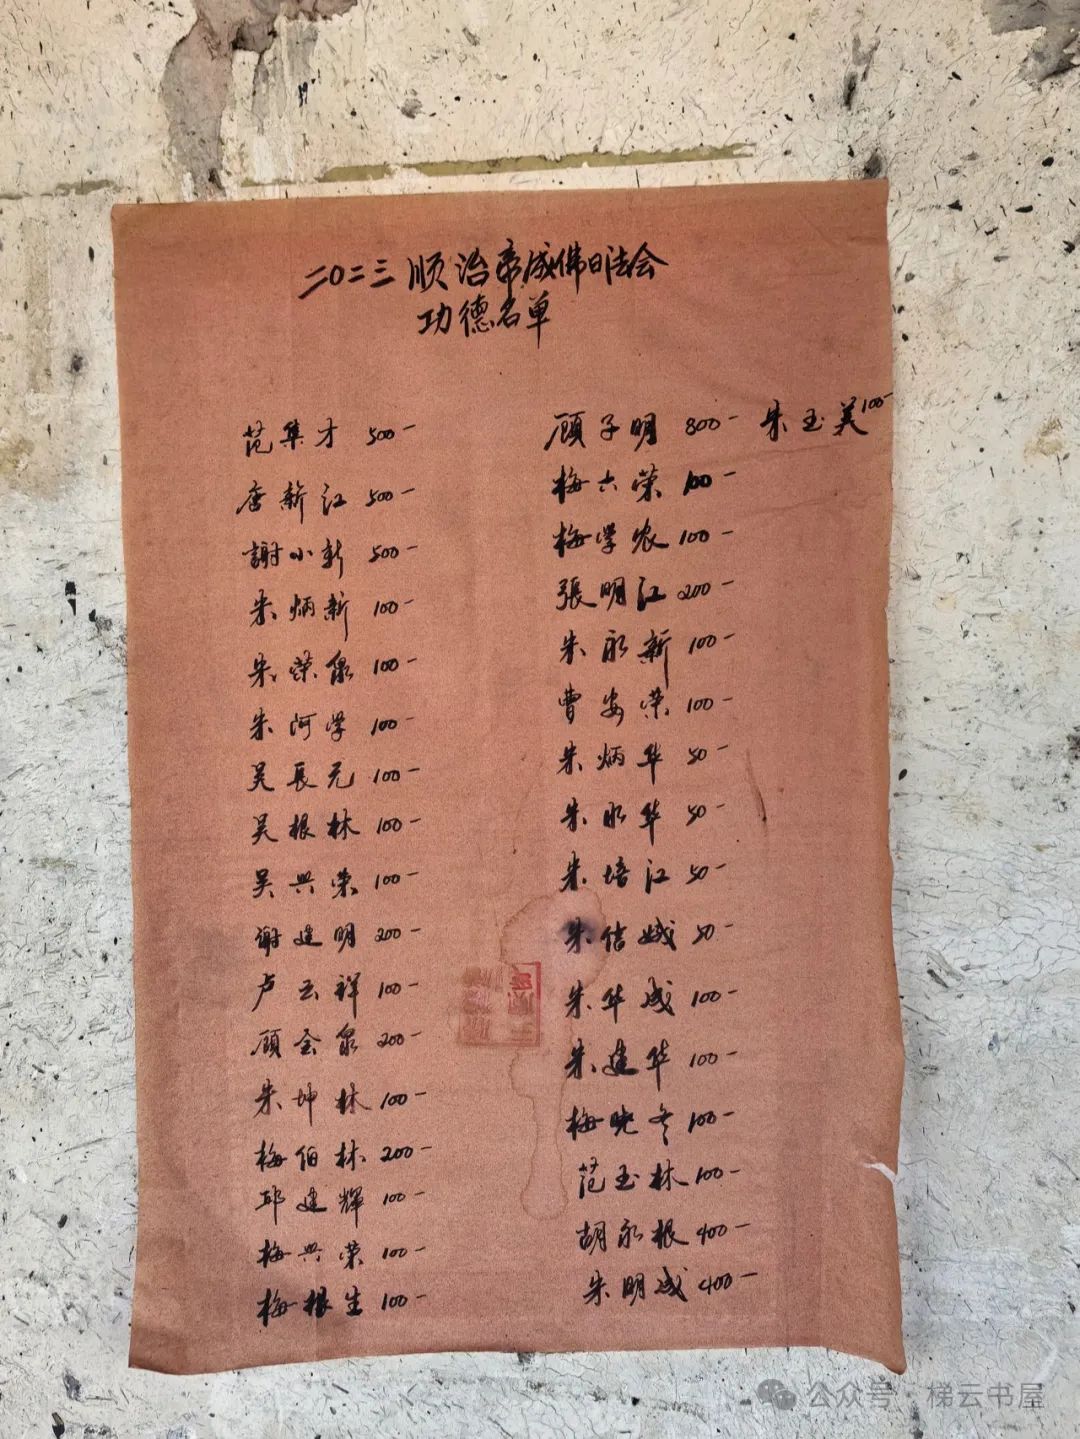 二〇二三顺治帝成佛日法会
功德名单
范集才 500-
唐新江 500-
謝小新 500-
朱炳新 100-
朱荣泉 100-
朱阿学 100-
吴長元 100-
吴根林 100-
吴兴荣 100-
谢建明 200-
卢云祥 100-
顾全泉 200-
朱坤林 100-
梅伯林 200-
邱建輝 100-
梅兴荣 100-
梅根生 100-
顾子明 800- 朱玉美 100-
梅六荣 100-
梅学农 100-
張明江 200-
朱永新 100-
曹安荣 100-
朱炳华 50-
朱永华 50-
朱培江 50-
朱佶娥 50-
朱华成 100-
朱建华 100-
梅晓冬 100-
范玉林 100-
胡永根 400-
朱明成 400-
公众号·梯云书屋